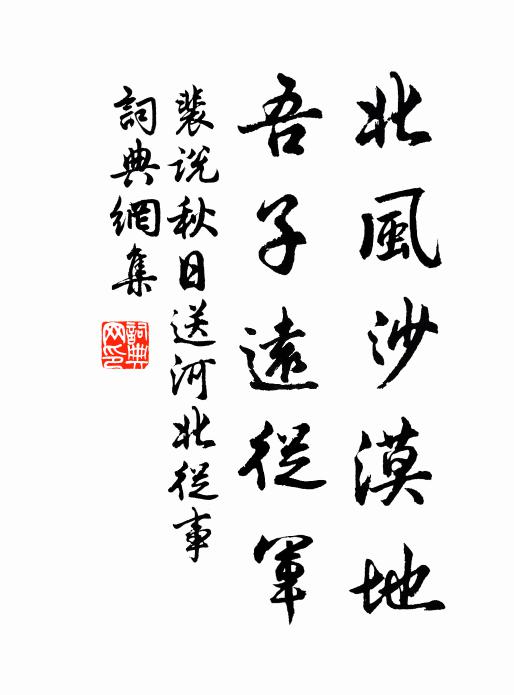 北風沙漠地
吾子遠從軍
裴説秋日送河北從事
詞典網集
詞典
網印